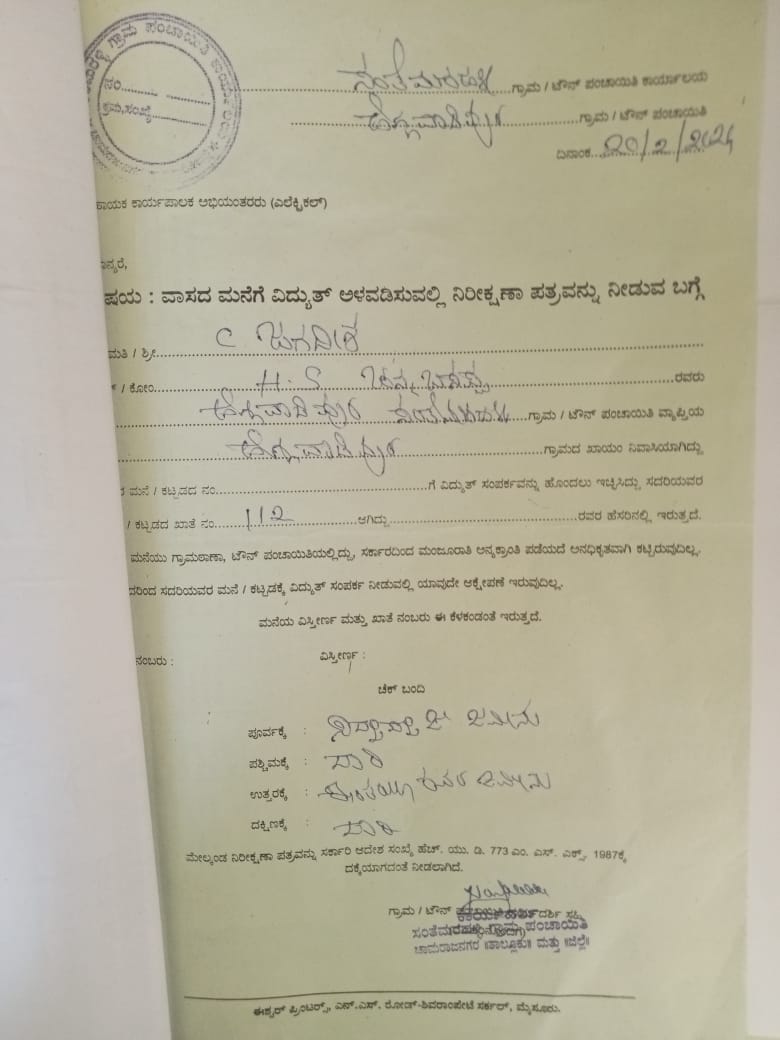 ಗ್ರಾಮ ಪಂಚಾಯಿತಿ ಕಾರ್ಯಾಲಯ
ನಂ..................
ಕ್ರಮ ಸಂಖ್ಯೆ............
ಸಂತೆಮರಹಳ್ಳಿ ಗ್ರಾಮ / ಟೌನ್ ಪಂಚಾಯಿತಿ ಕಾರ್ಯಾಲಯ
ಹೆಗ್ಗವಾಡಿಪುರ ಗ್ರಾಮ / ಟೌನ್ ಪಂಚಾಯಿತಿ
ದಿನಾಂಕ...20/2/2024
ಾಯಕ ಕಾರ್ಯಪಾಲಕ ಅಭಿಯಂತರರು (ಎಲೆಕ್ಟ್ರಿಕಲ್)
ಾನ್ಯರೆ,
ಷಯ : ವಾಸದ ಮನೆಗೆ ವಿದ್ಯುತ್ ಅಳವಡಿಸುವಲ್ಲಿ ನಿರೀಕ್ಷಣಾ ಪತ್ರವನ್ನು ನೀಡುವ ಬಗ್ಗೆ
ಮತಿ / ಶ್ರೀ........ C ಜಗದೀಶ
/ ಕೋಂ........ H. S ಚಿನ್ನಬಸಪ್ಪ ........ರವರು
ಹೆಗ್ಗವಾಡಿಪುರ ಸಂತೆಮರಹಳ್ಳಿ ....ಗ್ರಾಮ / ಟೌನ್ ಪಂಚಾಯಿತಿ ವ್ಯಾಪ್ತಿಯ
ಹೆಗ್ಗವಾಡಿಪುರ ........ಗ್ರಾಮದ ಖಾಯಂ ನಿವಾಸಿಯಾಗಿದ್ದು
ಮನೆ / ಕಟ್ಟಡದ ನಂ........................ಗೆ ವಿದ್ಯುತ್ ಸಂಪರ್ಕವನ್ನು ಹೊಂದಲು ಇಚ್ಛಿಸಿದ್ದು ಸದರಿಯವರ
/ ಕಟ್ಟಡದ ಖಾತೆ ನಂ.....112........ಆಗಿದ್ದು........................ರವರ ಹೆಸರಿನಲ್ಲಿ ಇರುತ್ತದೆ.
ಮನೆಯು ಗ್ರಾಮಠಾಣಾ, ಟೌನ್ ಪಂಚಾಯಿತಿಯಲ್ಲಿದ್ದು, ಸರ್ಕಾರದಿಂದ ಮಂಜೂರಾತಿ ಅನ್ಯಕ್ರಾಂತಿ ಪಡೆಯದೆ ಅನಧಿಕೃತವಾಗಿ ಕಟ್ಟಿರುವುದಿಲ್ಲ.
ದರಿಂದ ಸದರಿಯವರ ಮನೆ / ಕಟ್ಟಡಕ್ಕೆ ವಿದ್ಯುತ್ ಸಂಪರ್ಕ ನೀಡುವಲ್ಲಿ ಯಾವುದೇ ಆಕ್ಷೇಪಣೆ ಇರುವುದಿಲ್ಲ.
ಮನೆಯ ವಿಸ್ತೀರ್ಣ ಮತ್ತು ಖಾತೆ ನಂಬರು ಈ ಕೆಳಕಂಡಂತೆ ಇರುತ್ತದೆ.
ನಂಬರು : ವಿಸ್ತೀರ್ಣ :
ಚೆಕ್ ಬಂದಿ
ಪೂರ್ವಕ್ಕೆ : ಜಮೀನು
ಪಶ್ಚಿಮಕ್ಕೆ :
ಉತ್ತರಕ್ಕೆ : ಜಮೀನು
ದಕ್ಷಿಣಕ್ಕೆ :
ಮೇಲ್ಕಂಡ ನಿರೀಕ್ಷಣಾ ಪತ್ರವನ್ನು ಸರ್ಕಾರಿ ಆದೇಶ ಸಂಖ್ಯೆ ಹೆಚ್. ಯು. ಡಿ. 773 ಎಂ. ಎಸ್. ಎಕ್ಸ್. 1987ಕ್ಕೆ
ದಕ್ಕೆಯಾಗದಂತೆ ನೀಡಲಾಗಿದೆ.
ಗ್ರಾಮ / ಟೌನ್
ಸಂತೆಮರಹಳ್ಳಿ ಗ್ರಾಮ ಪಂಚಾಯಿತಿ
ಚಾಮರಾಜನಗರ ತಾಲ್ಲೂಕು ಮತ್ತು ಜಿಲ್ಲೆ
ಈಶ್ವರ್ ಪ್ರಿಂಟರ್ಸ್, ಎನ್.ಎಸ್. ರೋಡ್-ಶಿವರಾಂಪೇಟೆ ಸರ್ಕಲ್, ಮೈಸೂರು.